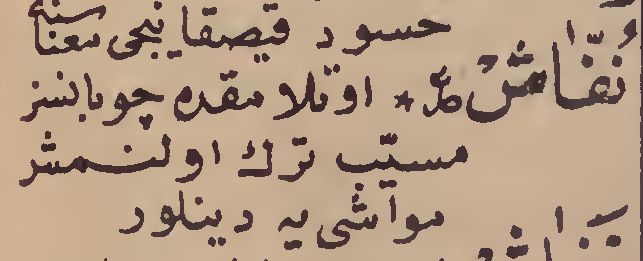 حسود قیصقانیجی معناسنه
نُفَّاش * اوتلامقده چوبانسز
مسیّب ترك اولنمش
مواشی یه دینلور